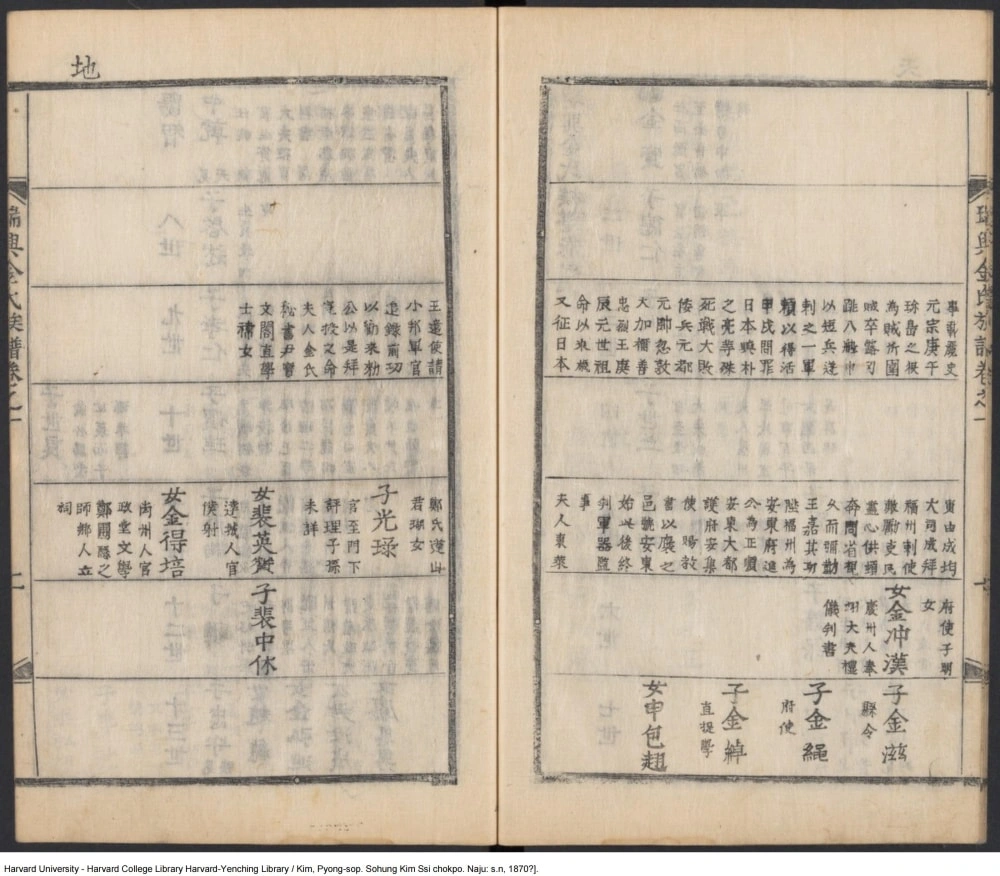 瑞興金氏族譜卷之一
事載麗史
元宗庚午
珎島之役
為賊所圍
賊卒露刃
跳入船中
以短兵逆
刺之一軍
頼以得活
甲戌問罪
日本與朴
之亮等殊
死戰大敗
倭兵元都
元帥忽敦
大加稱善
忠烈王庚
辰元世祖
命以來
又征日本
寅由成均
大司成拜
福州刺使
吏民
盡心供頓
問省視
久而彌勤
王嘉其功
陞福州為
安東府進
公為正
安東大都
護府安集
使賜教
書以褒之
邑號安東
始此後終
判軍器監
事
夫人東萊
府使子
女
女金冲漢
慶州人奉
翊大夫禮
儀判書
子金滋
縣令
子金繩
府使
子金綽
直提學
女申包翹
地
王遣使請
小邦軍官
追錄前功
以勸來効
公以是拜
投之命
夫人金氏
秘書尹寶
文閣直學
士禣女
鄭氏蓬山
君瑚女
子光琭
官至門下
評理子孫
未詳
女裴英
達城人官
僕射
女金得培
尚州人官
政堂文學
鄭圃隱之
師鄉人立
祠
子裴中休
瑞興金氏族譜卷之一
Harvard University - Harvard College Library Harvard-Yenching Library / Kim, Pyong-sop. Sohung Kim Ssi chokpo. Naju: s.n, 1870?].